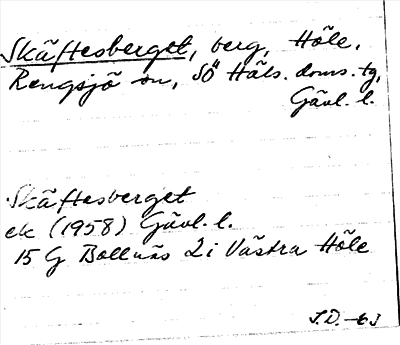 Skäftesberget, berg, Höle,
Rengsjö sn, SÖ Häls. doms. tg,
Gävl. l.
Skäftesberget
ek (1958) Gävl. l.
15 G Bollnäs 2 i Västra Höle
J.D. -63